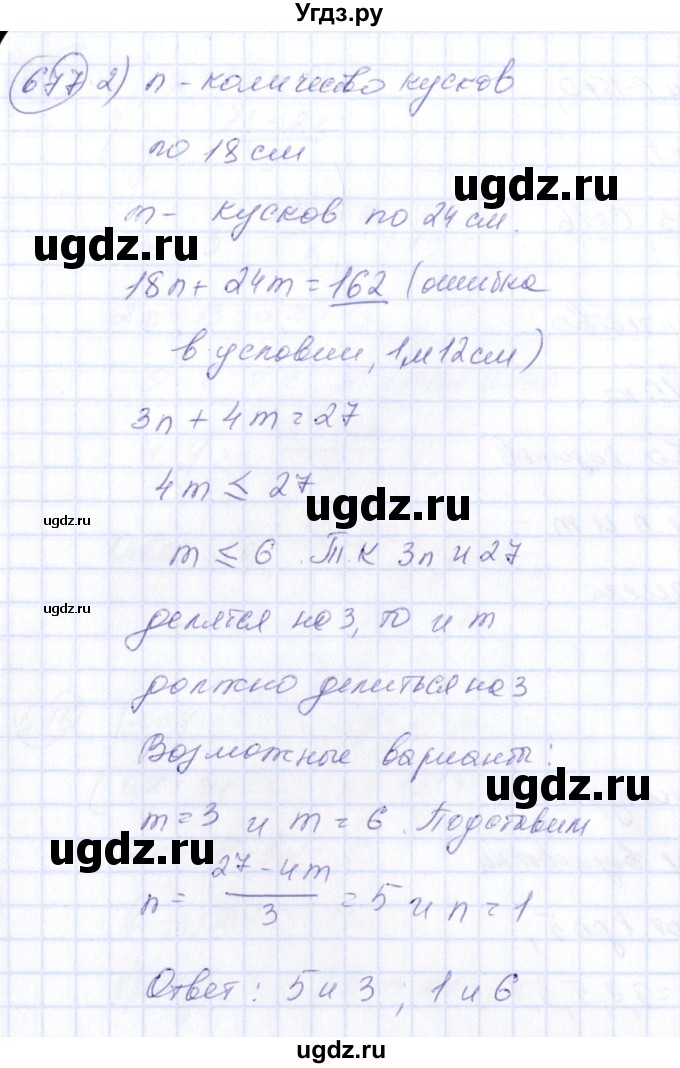 Угдз.ру
677 2) n - количество кусков
по 18 см
ugdz.ru
m - кусков по 24 см.
ugdz.ru
18n + 24m = 162 (ошибка
в условии, 1м 12см)
3n + 4m = 27
4m ≤ 27
ugdz.ru
ugdz.ru
m ≤ 6. Т.К 3n и 27
ugdz.ru
делятся на 3, то и m
должно делиться на 3
Возможные варианты:
ugdz.ru
m = 3 и m = 6. Подставим
ugdz.ru
n = (27 - 4m)/3 = 5 и n = 1
Ответ: 5 и 3; 1 и 6
ugdz.ru